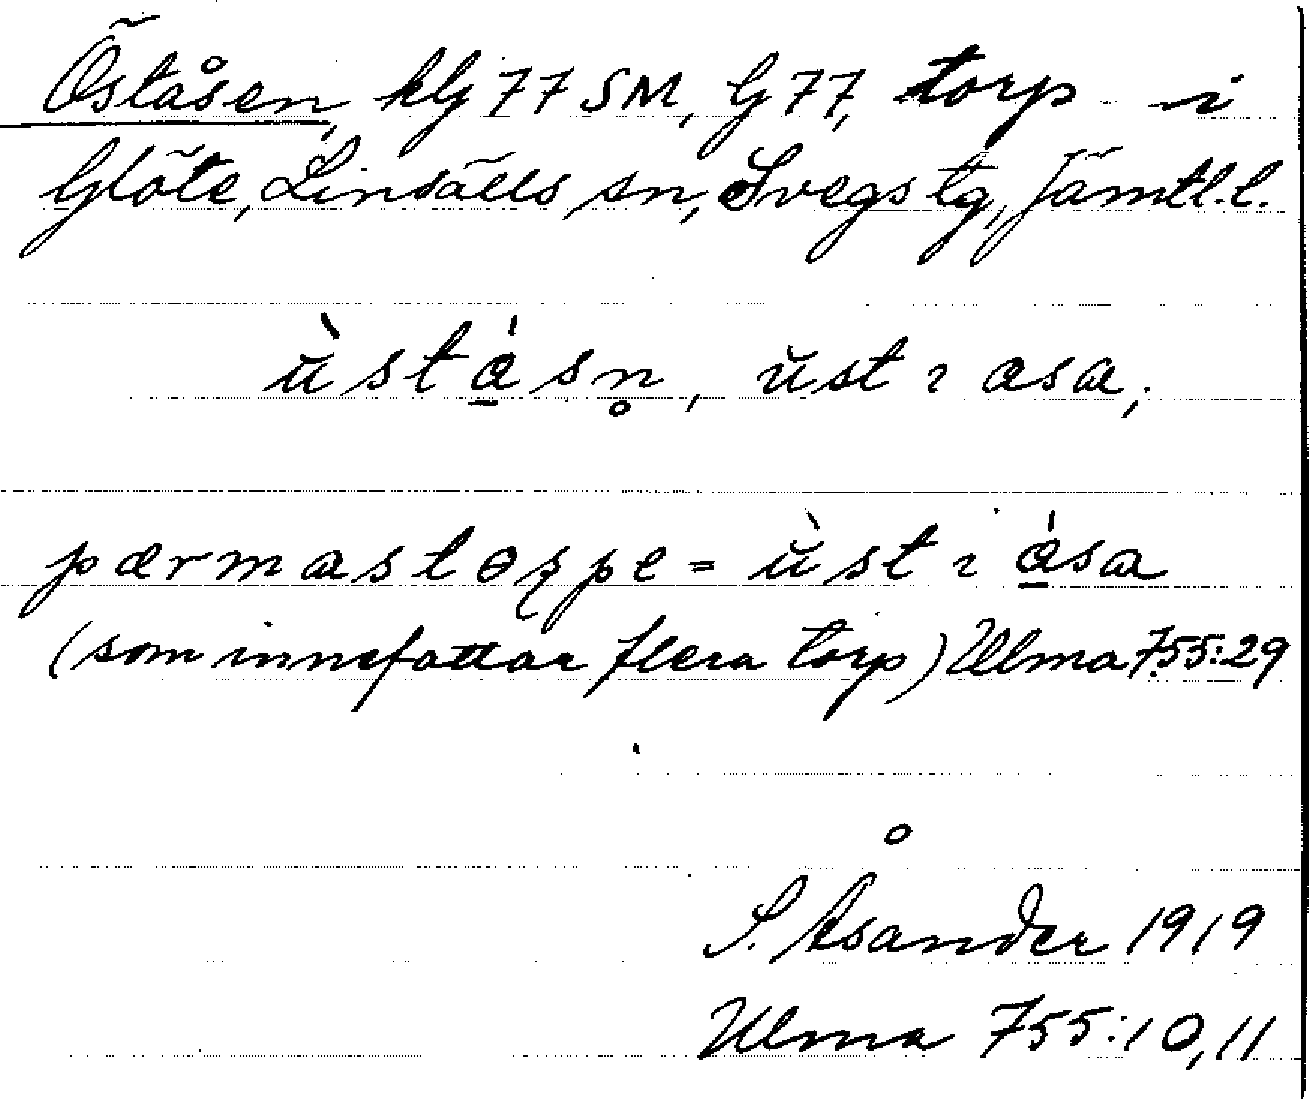 Öståsen, klg 77 SM, G 77, torp i
Glöte, Linsälls sn, Svegs tg, Jämtl.l.
ùstásn̥, ust ı asa,
pærmastɵppe = ùst ı ása
(som innefattar flera torp) Ulma 755:29
S. Åsander 1919
Ulma 755:10,11